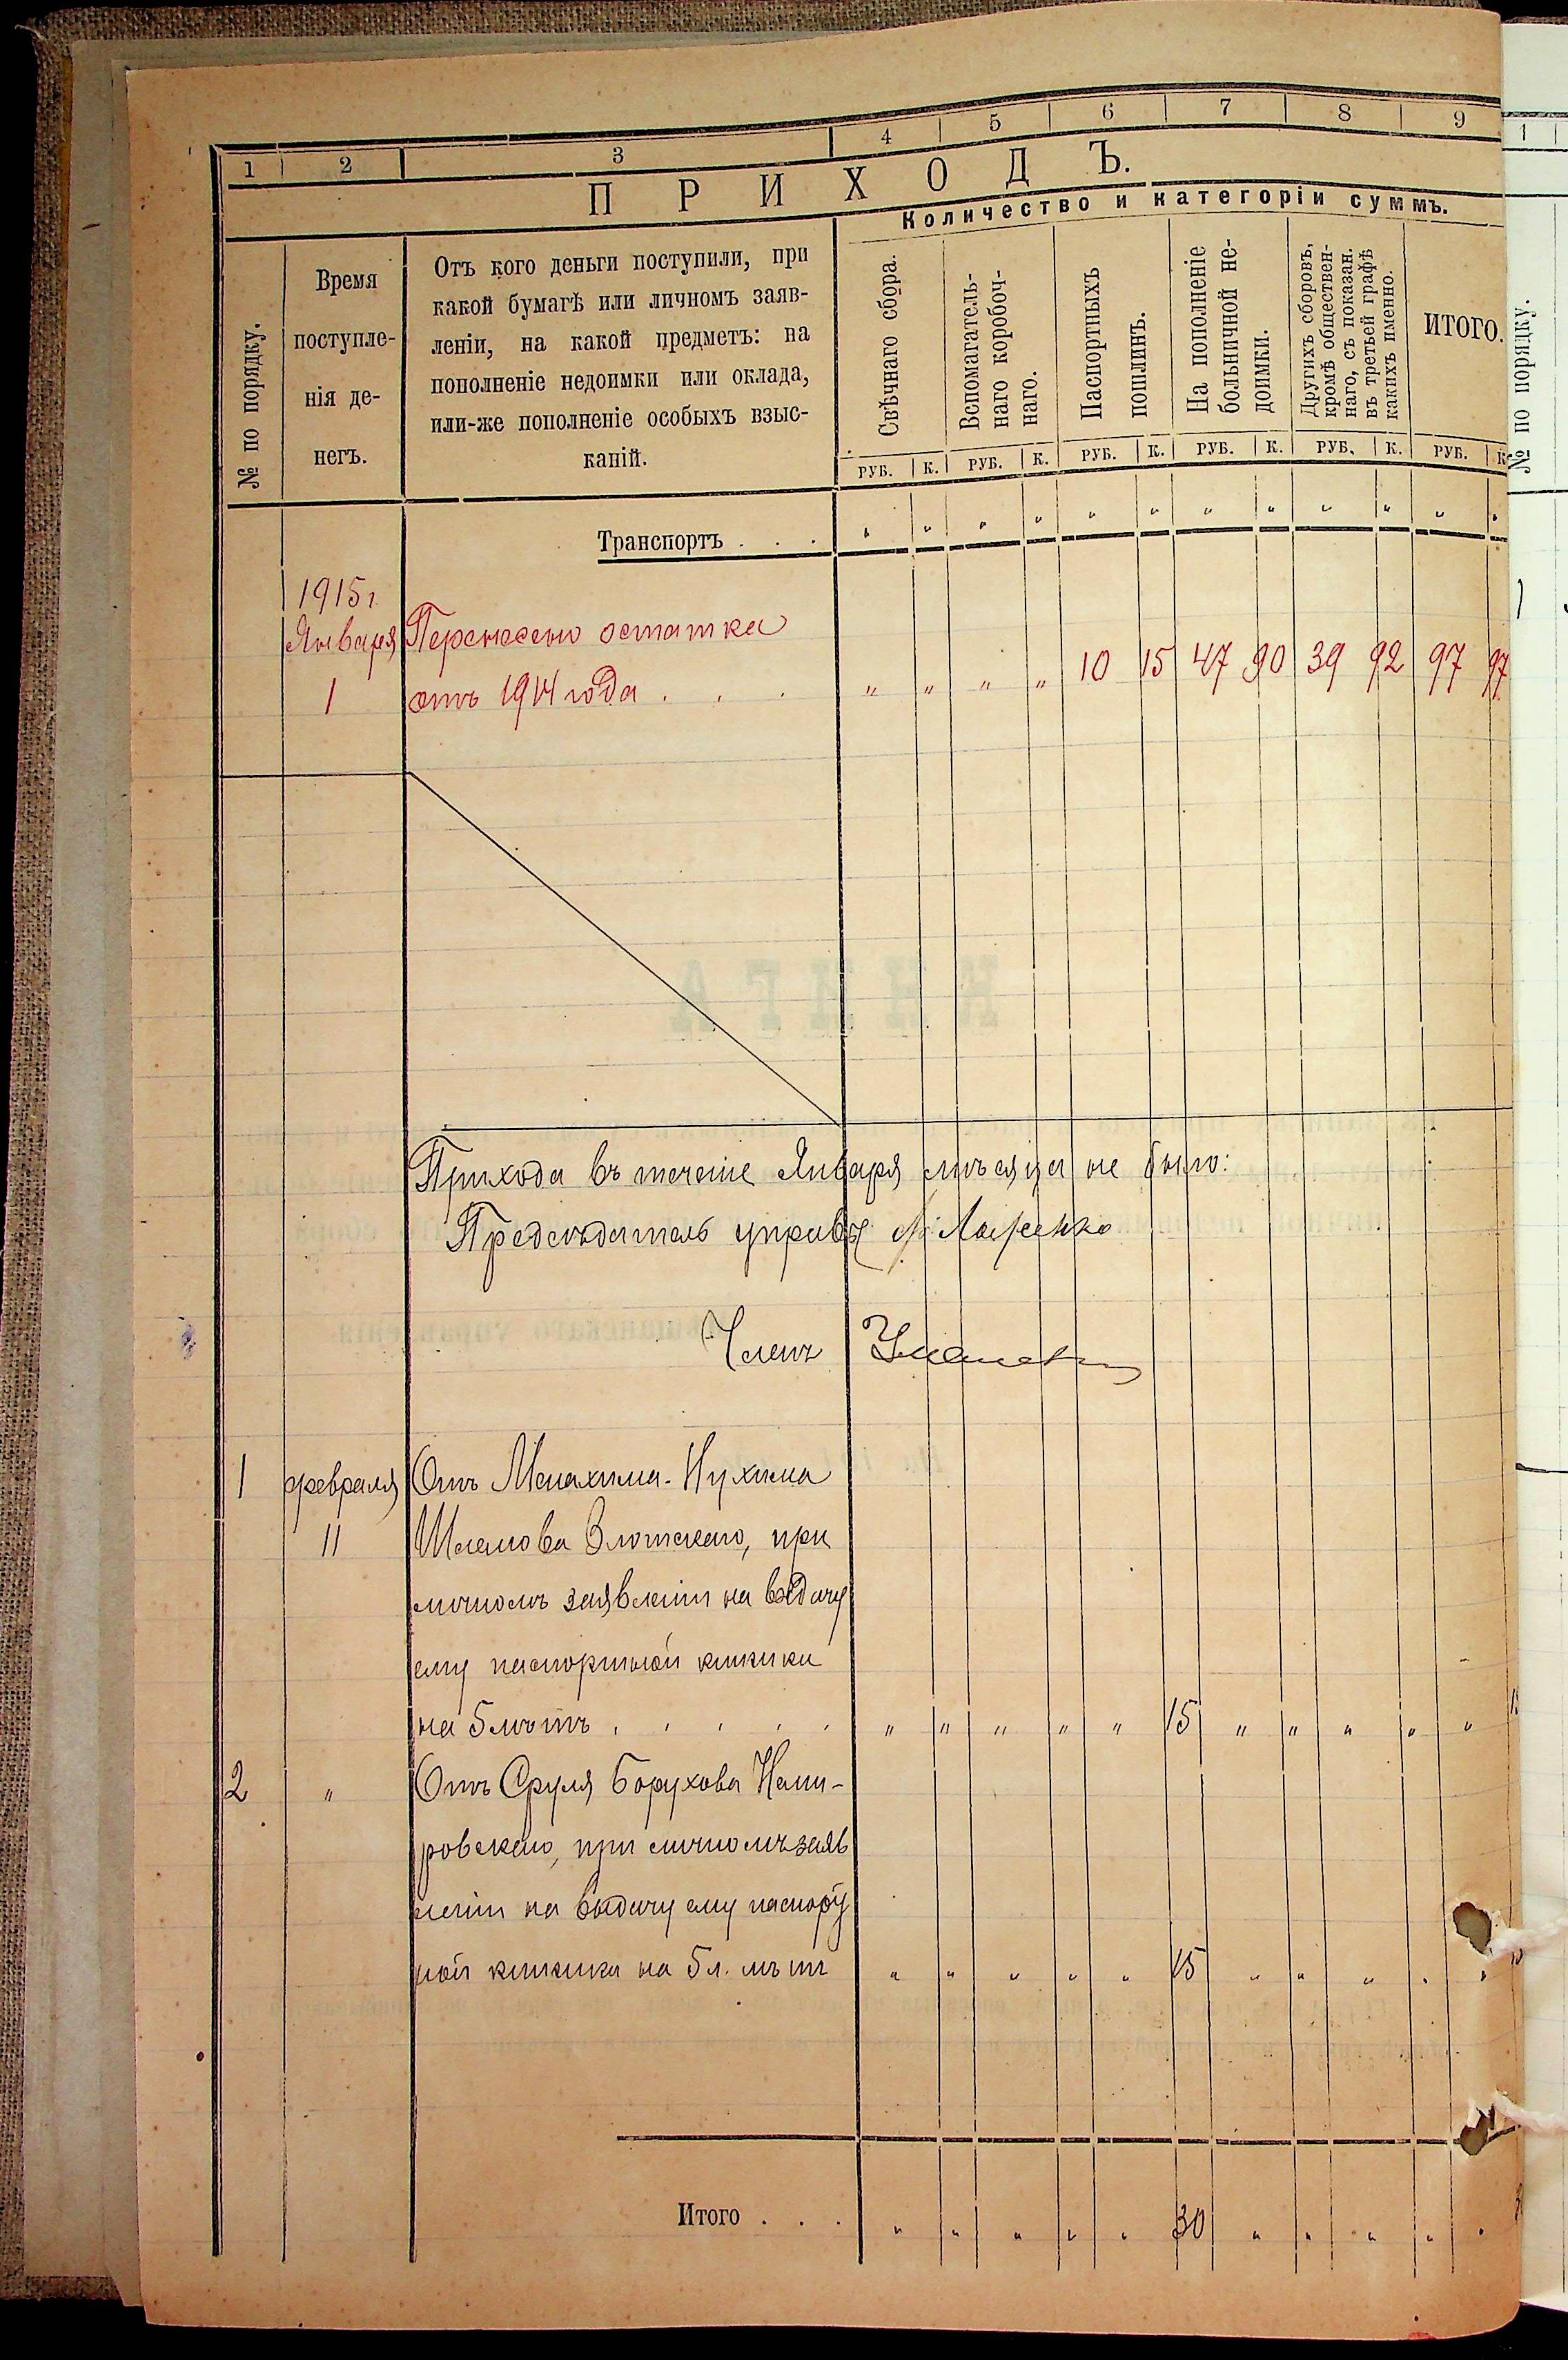 1 2 3 4 5 6 7 8 9
ПРИХОДЪ.
Количество и категоріи суммъ.
№ по порядку.
Время
поступле-
нія де-
негъ.
Отъ кого деньги поступили, при
какой бумагѣ или личномъ заяв-
леніи, на какой предметъ: на
пополненіе недоимки или оклада,
или-же пополненіе особыхъ взыс-
каній.
Свѣчнаго сбора.
Вспомагатель-
наго коробоч-
наго.
Паспортныхъ
пошлинъ.
На пополненіе
больничной не-
доимки.
Другихъ сборовъ,
кромѣ обществен-
наго, съ показан.
въ третьей графѣ
какихъ именно.
ИТОГО.
РУБ. К. РУБ. К. РУБ. К. РУБ. К. РУБ. К. РУБ. К
Транспортъ . . . „ „ „ „ „ „ „ „ „ „ „ „
1915 г
Января Перенесено остатка
1 отъ 1914 года . . . „ „ „ „ 10 15 47 90 39 92 97 97
Прихода въ теченіе Января мѣсяца не было:
Предсѣдатель управы
Членъ
1 февраля Отъ Менахима-Нухима
11 Шлемова Злотскаго, при
личномъ заявленіи на выдачу
ему паспортной книжки
на 5 лѣтъ . . . . . „ „ „ „ „ 15 „ „ „ „ „
2 „ Отъ Сруля Борухова Неми-
ровскаго, при личномъ заяв
леніи на выдачу ему паспорт
ной книжки на 5 л. лѣтъ „ „ „ „ „ 15 „ „ „ „ „
Итого . . . „ „ „ „ „ 30 „ „ „ „ „
1
№ по порядку.
1